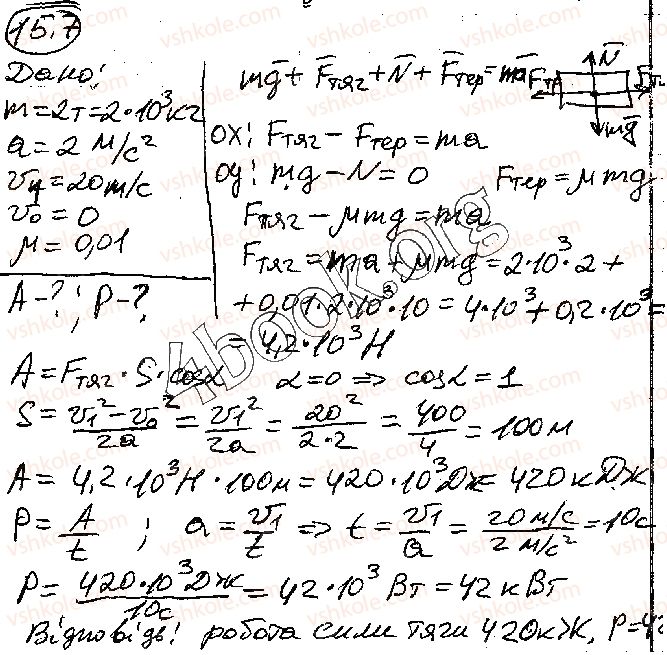 15.7
Дано:
m = 2т = 2·10³ кг
a = 2 м/с²
v₁ = 20 м/с
v₀ = 0
μ = 0,01
A - ? ; P - ?
mg̅ + F̅тяг + N̅ + F̅тер = ma̅
N̅
mg̅
ox: Fтяг - Fтер = ma
oy: mg - N = 0 Fтер = μmg
Fтяг - μmg = ma
Fтяг = ma + μmg = 2·10³·2 +
+ 0,01·2·10³·10 = 4·10³ + 0,2·10³ =
= 4,2·10³ Н
A = Fтяг · S · cosα α = 0 ⇒ cosα = 1
S = (v₁² - v₀²)/2a = v₁²/2a = 20²/(2·2) = 400/4 = 100м
A = 4,2·10³Н · 100м = 420·10³Дж = 420 кДж
P = A/t ; a = v₁/t ⇒ t = v₁/a = (20 м/с)/(2 м/с²) = 10с
P = (420·10³ Дж)/10с = 42·10³ Вт = 42 кВт
Відповідь: робота сили тяги 420кЖ, P=42
4book.org
vshkole.com